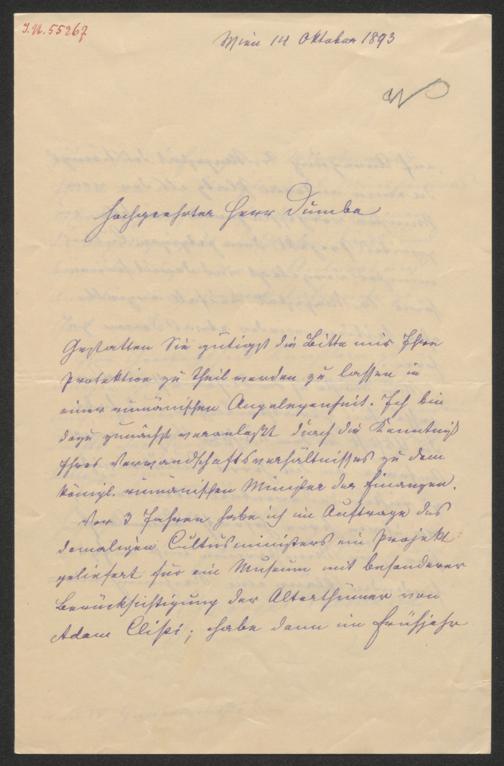 J.N. 55267
Wien 14 Oktober 1893
Hochgeehrter Herr Dumba
Gestatten Sie gütigst die Bitte mir Ihre
Protektion zu Theil werden zu lassen in
einer rumänischen Angelegenheit. Ich bin
dazu zunächst veranlaßt durch die Kenntniß
Ihres Verwandschaftsverhältnisses zu dem
königl. rumänischen Minister der Finanzen.
Vor 3 Jahren habe ich im Auftrage des
damaligen Cultusministers ein Projekt
geliefert für ein Museum mit besonderer
Berücksichtigung der Alterthümer von
Adam Clissi; habe dann im Frühjahr